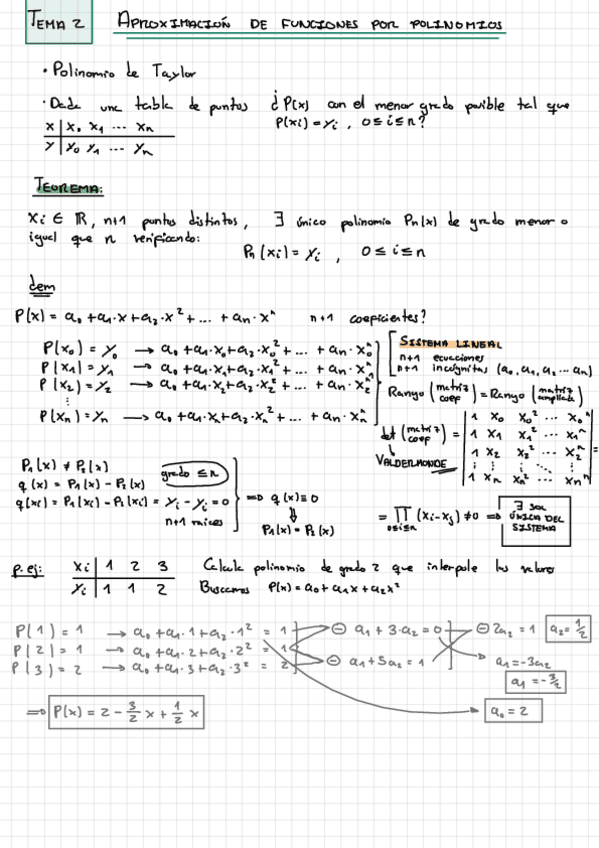 TEMA 2 APROXIMACIÓN DE FUNCIONES POR POLINOMIOS
· Polinomio de Taylor
· Dada una tabla de puntos ¿P(x) con el menor grado posible tal que
x | x₀ x₁ ... xₙ P(xᵢ) = yᵢ , 0≤i≤n?
y | y₀ y₁ ... yₙ
TEOREMA:
xᵢ ∈ ℝ, n+1 puntos distintos, ∃ único polinomio Pₙ(x) de grado menor o
igual que n verificando:
Pₙ(xᵢ) = yᵢ , 0≤i≤n
dem
P(x) = a₀ + a₁·x + a₂·x² + ... + aₙ·xⁿ n+1 coeficientes?
P(x₀) = y₀ → a₀ + a₁·x₀ + a₂·x₀² + ... + aₙ·x₀ⁿ
P(x₁) = y₁ → a₀ + a₁·x₁ + a₂·x₁² + ... + aₙ·x₁ⁿ
P(x₂) = y₂ → a₀ + a₁·x₂ + a₂·x₂² + ... + aₙ·x₂ⁿ
⋮
P(xₙ) = yₙ → a₀ + a₁·xₙ + a₂·xₙ² + ... + aₙ·xₙⁿ
SISTEMA LINEAL
n+1 ecuaciones
n+1 incógnitas (a₀, a₁, a₂ ... aₙ)
Rango (matriz coef) = Rango (matriz ampliada)
det (matriz coef) = | 1 x₀ x₀² ... x₀ⁿ
1 x₁ x₁² ... x₁ⁿ
1 x₂ x₂² ... x₂ⁿ
⋮ ⋮ ⋮ ⋱ ⋮
1 xₙ xₙ² ... xₙⁿ | =
VALDERMONDE
= ∏ (xᵢ-xⱼ) ≠ 0 ⇒ ∃ SOL ÚNICA DEL SISTEMA
P₁(x) ≠ P₂(x)
q(x) = P₁(x) - P₂(x) grado ≤ n
q(xᵢ) = P₁(xᵢ) - P₂(xᵢ) = yᵢ - yᵢ = 0 ⇒ q(x) ≡ 0
n+1 raíces
⇓
P₁(x) = P₂(x)
p.ej: xᵢ | 1 2 3 Calcula polinomio de grado 2 que interpole los valores
yᵢ | 1 1 2 Buscamos P(x) = a₀ + a₁x + a₂x²
P(1) = 1 → a₀ + a₁·1 + a₂·1² = 1 ⊖ a₁ + 3·a₂ = 0 ⊖ 2a₂ = 1 a₂ = 1/2
P(2) = 1 → a₀ + a₁·2 + a₂·2² = 1
P(3) = 2 → a₀ + a₁·3 + a₂·3² = 2 ⊖ a₁ + 5a₂ = 1 a₁ = -3a₂
a₁ = -3/2
⇒ P(x) = 2 - 3/2 x + 1/2 x a₀ = 2